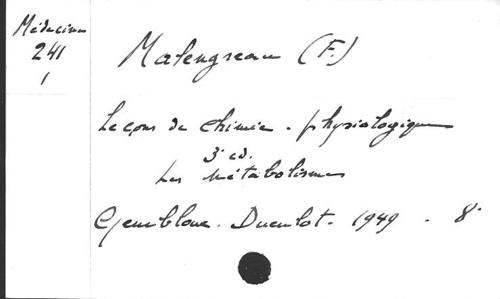 Médecine
241
1
Malengreau (F.)
Leçons de chimie. physiologique
3e ed.
Les Métabolismes
Gembloux. Duculot. 1949 . 8°